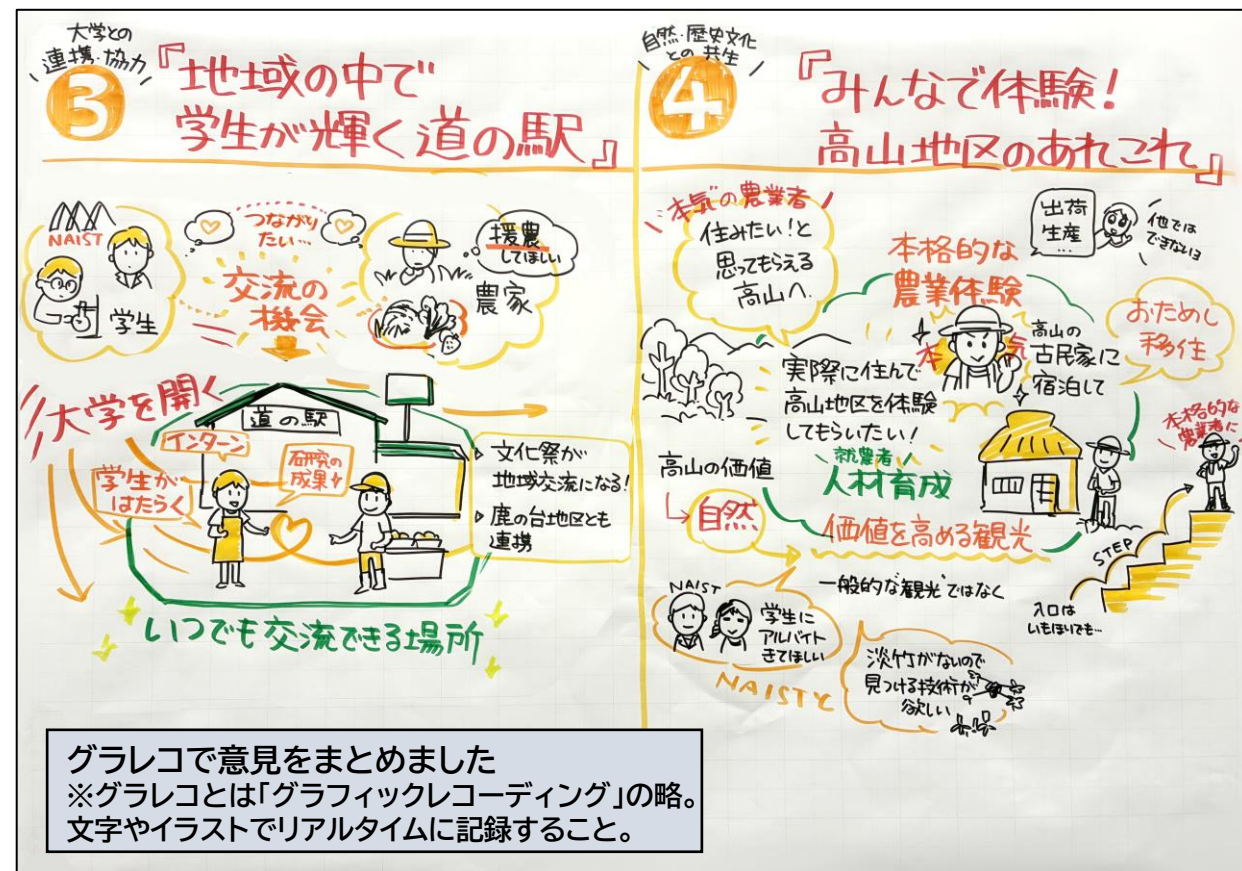 大学との
連携・協力
3
『地域の中で
学生が輝く道の駅』
NAIST
学生
つながり
たい…
交流の
機会
援農
してほしい
農家
大学を開く
道の駅
インターン
学生が
はたらく
研究の
成果
文化祭が
地域交流になる!
鹿の台地区とも
連携
いつでも交流できる場所
自然・歴史文化
との共生
4
『みんなで体験!
高山地区のあれこれ』
本気の農業者
住みたい!と
思ってもらえる
高山へ
出荷
生産
…
他では
できないヨ
本格的な
農業体験
本気
おためし
移住
高山の
古民家に
宿泊して
実際に住んで
高山地区を体験
してもらいたい!
就農者
人材育成
高山の価値
自然
価値を高める観光
本格的な
農業者に
STEP
入口は
いもほりでも…
一般的な"観光"ではなく
NAIST
学生に
アルバイト
きてほしい
NAISTと
淡竹がないので
見つける技術が
欲しい
グラレコで意見をまとめました
※グラレコとは「グラフィックレコーディング」の略。
文字やイラストでリアルタイムに記録すること。